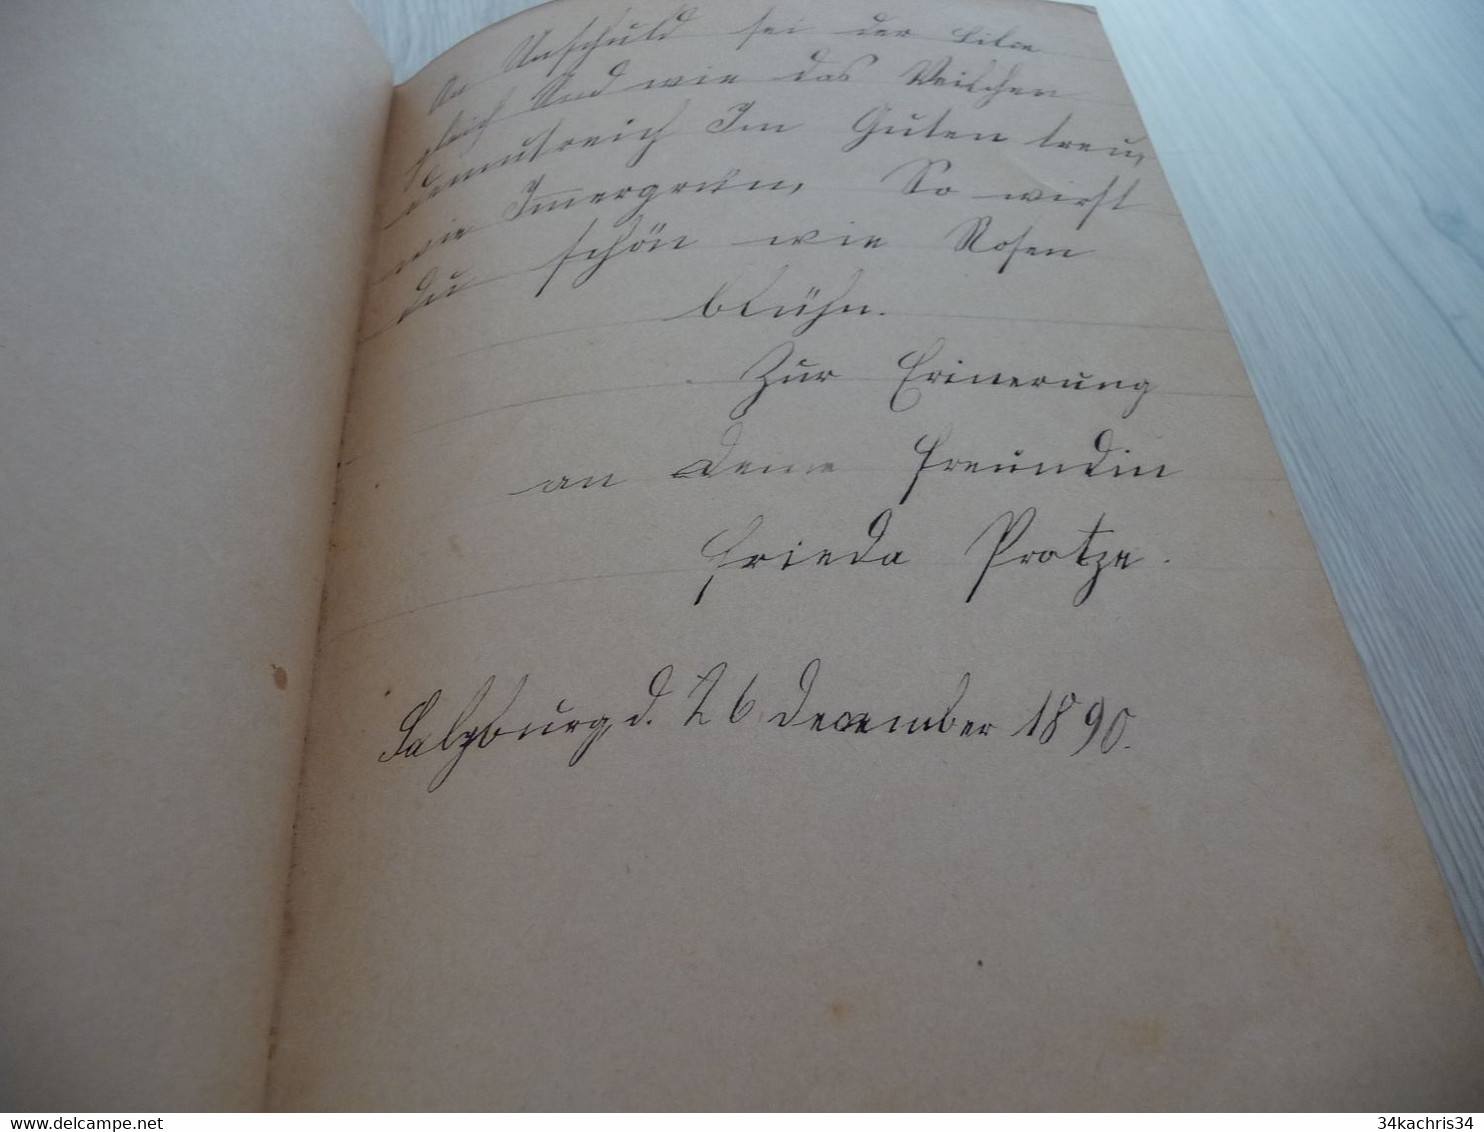 An Unschuld sei der Lilie
gleich Und wie das Veilchen
demutreich Im Guten treu,
wie Immergrün, So wirst
du schön wie Rosen
blühn.
Zur Erinerung
an deine Freundin
Frieda Protze.
Salzburg, d. 26 December 1890.
34kachris34
delcampe.net